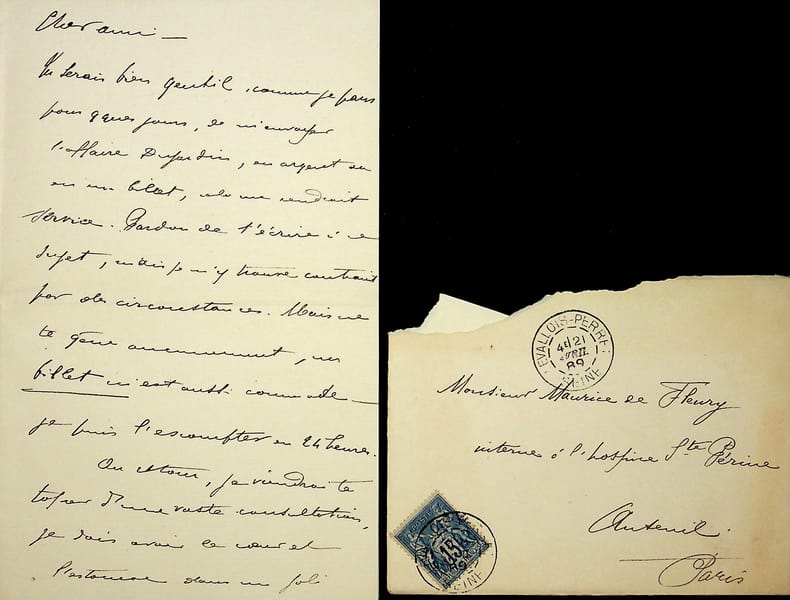 Cher ami —
Tu serais bien gentil, comme je pars
pour qques jours, de m'envoyer
l'affaire Dujardin, en argent ou
en un billet, cela me rendrait
service. Pardon de t'écrire à ce
sujet, mais je m'y trouve contraint
par des circonstances. Mais ne
te gêne aucunement, un
billet m'est aussi commode —
je puis l'escompter en 24 heures.
Au retour, je viendrai te
taper d'une vaste consultation,
je dois avoir le cœur et
l'estomac dans un joli
LEVALLOIS-PERRET
4E 21
AVRIL
89
SEINE
Monsieur Maurice de Fleury
interne à l'hospice Ste Périne
Auteuil.
Paris
15
SEINE